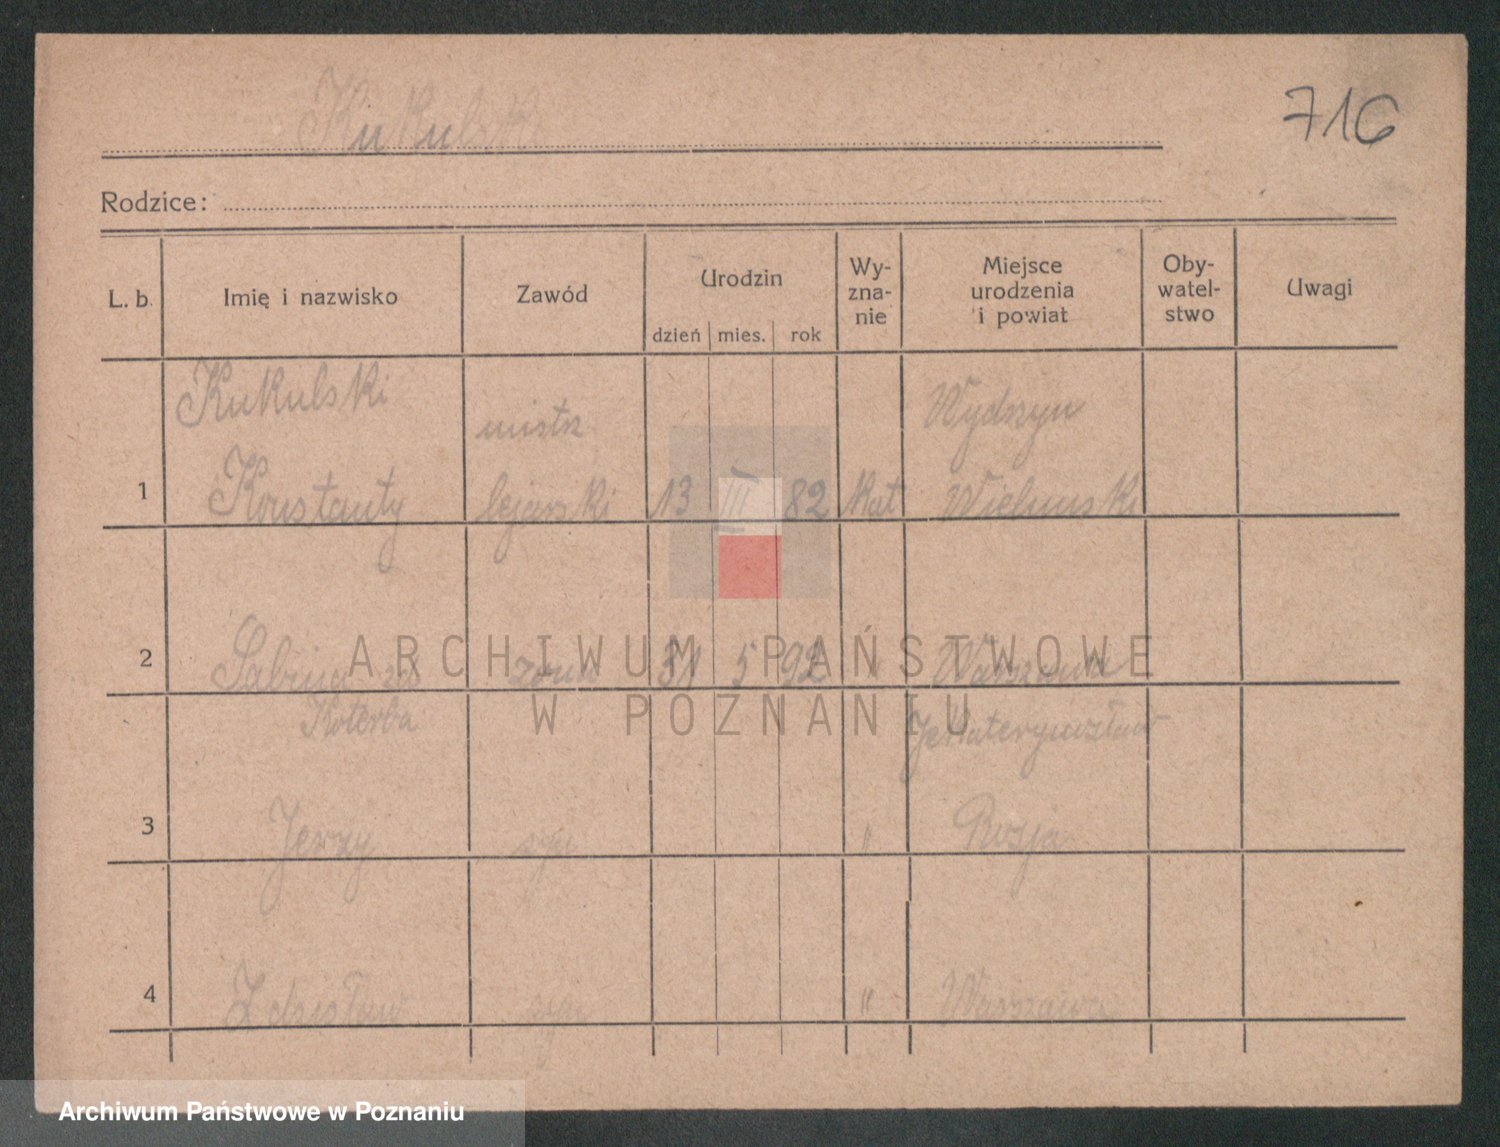 Kukulski
716
Rodzice:
L. b. Imię i nazwisko Zawód Urodzin dzień mies. rok Wy-zna-nie Miejsce urodzenia i powiat Oby-watel-stwo Uwagi
Kukulski mistrz Wydrzyn
1 Konstanty 13 III 82 kat Wieluński
2 Sabina zd żona 31 5 92 " Warszawa
Koterba
3 Jerzy syn " Rosja
4 Zdzisław syn " Warszawa
ARCHIWUM PAŃSTWOWE
W POZNANIU
Archiwum Państwowe w Poznaniu